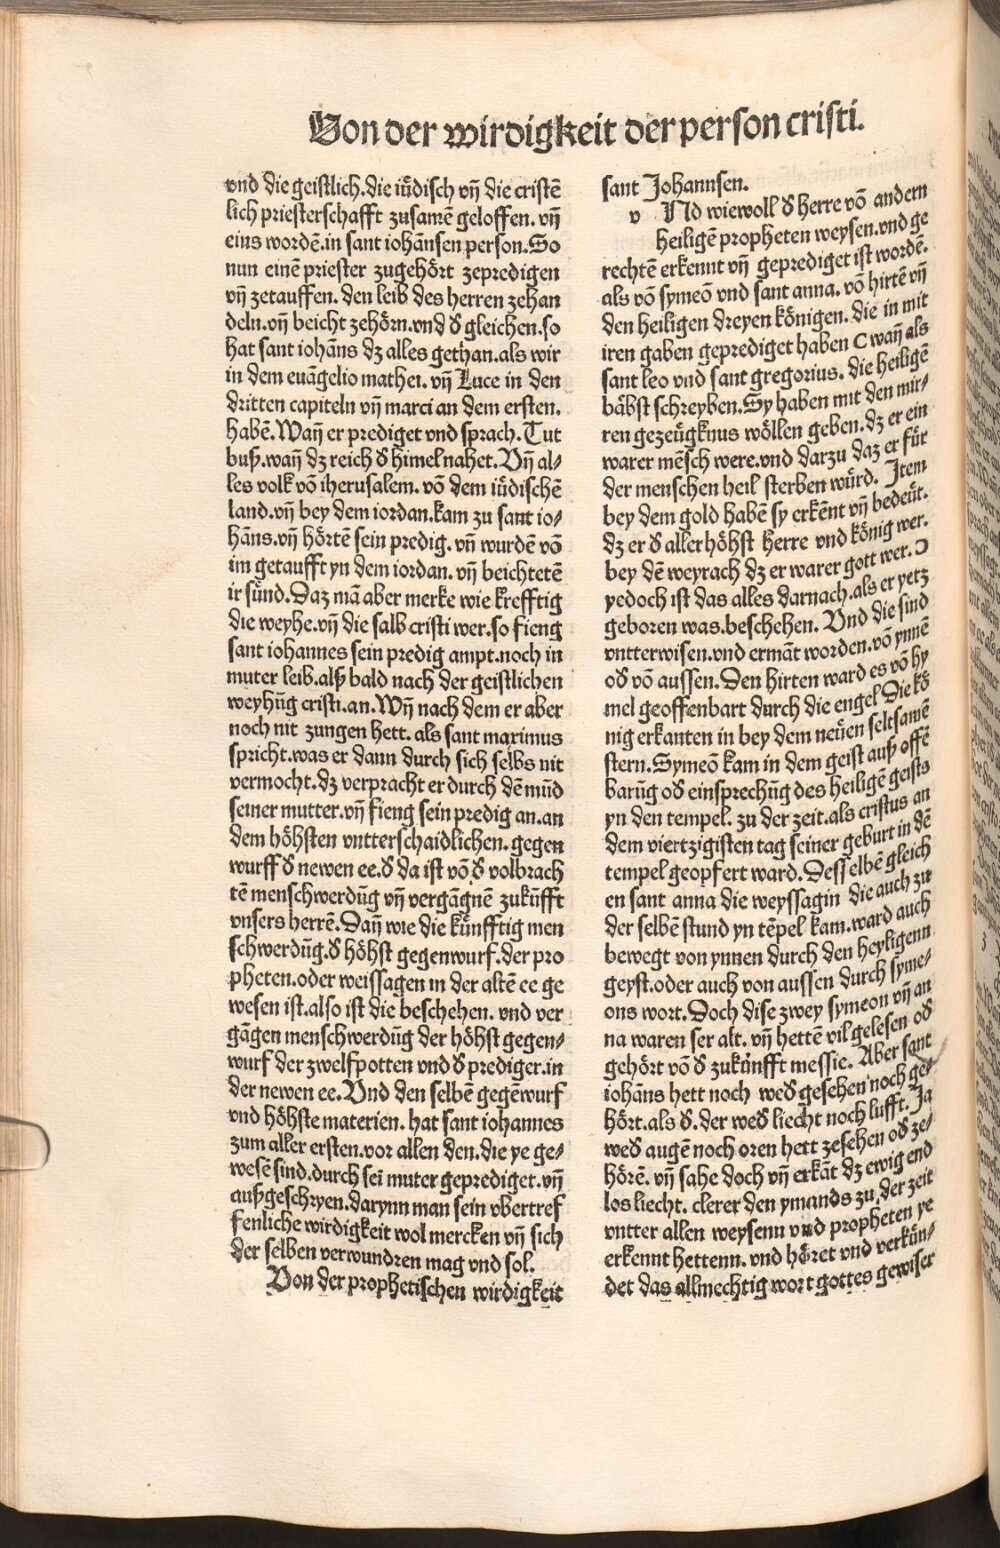 Von der wirdigkeit der person cristi.
vnd die geistlich.die iüdisch vn̄ die cristē
lich priesterschafft zusamē geloffen. vn̄
eins wordē.in sant iohānsen person.So
nun einē priester zugehört zepredigen
vn̄ zetauffen. den leib des herren zehan
deln.vn̄ beicht zehörn.vnd ꝺ gleichen.so
hat sant iohāns dz alles gethan.als wir
in dem euāgelio mathei. vn̄ Luce in den
dritten capiteln vn̄ marci an dem ersten.
habē.Wan̄ er prediget vnd sprach.Tut
buß.wan̄ dz reich ꝺ himel nahet.Vn̄ al⸗
les volk vō iherusalem. vō dem iüdischē
land.vn̄ bey dem iordan.kam zu sant io⸗
hāns.vn̄ hörtē sein predig. vn̄ wurdē vō
im getaufft yn dem iordan. vn̄ beichtetē
ir sünd.Daz mā aber merke wie krefftig
die weyhe.vn̄ die salb cristi wer.so fieng
sant iohannes sein predig ampt.noch in
muter leib.alß bald nach der geistlichen
weyhūg cristi.an.Wn̄ nach dem er aber
noch nit zungen hett. als sant maximus
spricht.was er dann durch sich selbs nit
vermocht.dz verpracht er durch dē mūd
seiner mutter.vn̄ fieng sein predig an.an
dem höhsten vntterschaidlichen. gegen
wurff ꝺ newen ee.ꝺ da ist vō ꝺ volbrach
tē menschwerdūg vn̄ vergāgnē zukūfft
vnsers herrē.Dan̄ wie die künfftig men
schwerdūg.ꝺ höhst gegenwurf.der pro
pheten.oder weissagen in der altē ee ge
wesen ist.also ist die beschehen. vnd ver
gāgen menschwerdūg der höhst gegen⸗
wurf der zwelfpotten vnd ꝺ prediger.in
der newen ee.Vnd den selbē gegēwurf
vnd höhste materien. hat sant iohannes
zum aller ersten.vor allen den.die ye ge⸗
wesē sind.durch sei muter geprediget.vn̄
außgeschryen.darynn man sein vbertref
fenliche wirdigkeit wol mercken vn̄ sich
der selben verwundren mag vnd sol.
Von der prophetischen wirdigkeit
sant Johannsen.
v Nd wiewoll ꝺ herre vō andern
heiligē propheten weysen.vnd ge
rechtē erkennt vn̄ geprediget ist wordē.
als vō symeō vnd sant anna. vō hirtē vn̄
den heiligen dreyen königen. die in mit
iren gaben geprediget haben C wan̄ als
sant leo vnd sant gregorius. die heiligē
bäbst schreyben.Sy haben mit den mir⸗
ren gezeügknus wöllen geben.dz er ein
warer mēsch were.vnd darzu daz er für
der menschen heil sterben würd. Item
bey dem gold habē sy erkēnt vn̄ bedeüt.
dz er ꝺ aller höhst herre vnd könig wer.
bey dē weyrach dz er warer gott wer. Ɔ
yedoch ist das alles darnach.als er yetz
geboren was.beschehen. Vnd die sind
vntterwisen.vnd ermāt worden.vō ynnē
oꝺ vō aussen.Den hirten ward es vō hy
mel geoffenbart durch die engel Die kö
nig erkanten in bey dem neüen seltsamē
stern.Symeō kam in dem geist auß offē
barūg oꝺ einsprechūg des heiligē geists
yn den tempel. zu der zeit.als cristus an
dem viertzigisten tag seiner geburt in dē
tempel geopfert ward. Desselbē gleich
en sant anna die weyssagin die auch zu
der selbē stund yn tēpel kam.ward auch
bewegt von ynnen durch den heyligenn
geyst.oder auch von aussen durch syme⸗
ons wort.Doch dise zwey symeon vn̄ an
na waren ser alt. vn̄ hettē vil gelesen oꝺ
gehört vō ꝺ zukünfft messie. Aber sant
iohāns hett noch weꝺ gesehen noch ge⸗
hört.als ꝺ.der weꝺ liecht noch lufft. Ja
weꝺ augē noch oren hett zesehen oꝺ ze⸗
hörē. vn̄ sahe doch vn̄ erkāt dz ewig end
los liecht. clerer den ymands zu der zeit
vntter allen weysenn vnd propheten ye
erkennt hettenn. vnd höret vnd verkün⸗
det das allmechtig wort gottes gewiser